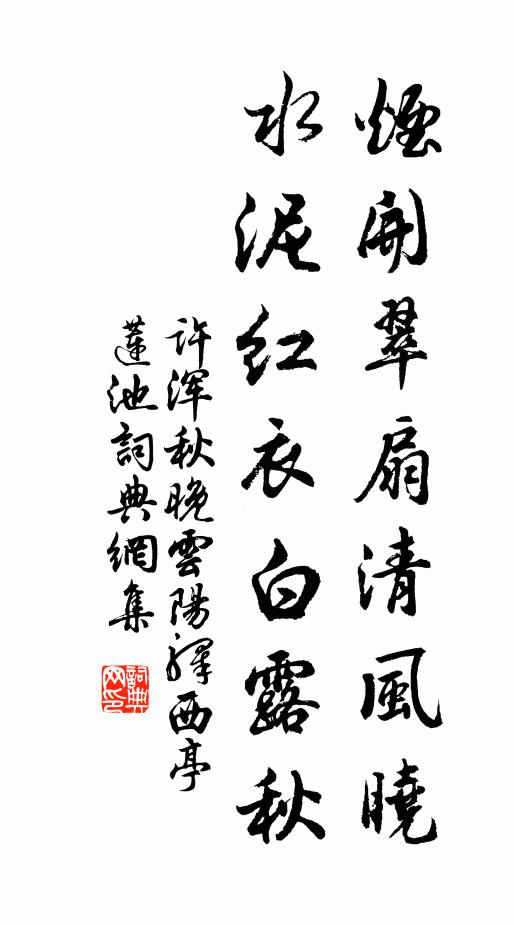 煙開翠扇清風曉
水泥紅衣白露秋
许浑秋晚雲陽驛西亭
蓮池詞典網集
詞典网印